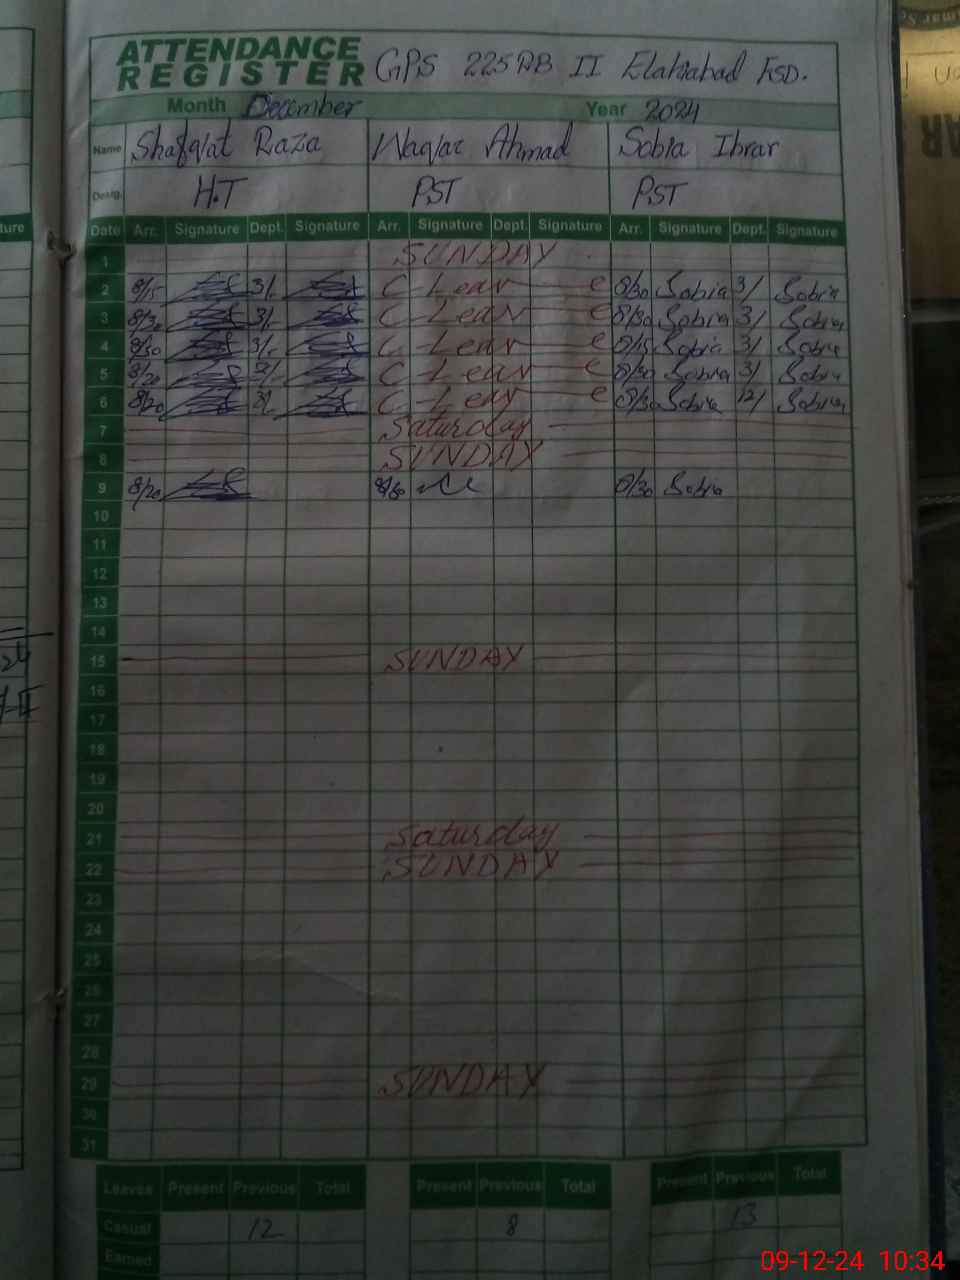 ATTENDANCE
REGISTER GPS 225RB II Elahiabad FSD.
Month December Year 2024
Name Shafqat Raza Waqar Ahmad Sobia Ibrar
Desig. H.T PST PST
Date Arr. Signature Dept. Signature Arr. Signature Dept. Signature Arr. Signature Dept. Signature
1 SUNDAY
2 8/15 3/. C - Leav e 8/30 Sobia 3/ Sobia
3 8/30 3/. C - Leav e 8/30 Sobia 3/ Sobia
4 8/30 3/. C - Leav e 8/15 Sobia 3/ Sobia
5 8/20 C - Leav e 8/30 Sobia 3/ Sobia
6 8/20 3/. C - Leav e 8/30 Sobia 12/ Sobia
7 Saturday
8 SUNDAY
9 8/20 8/30 Sobia
10
11
12
13
14
15 SUNDAY
16
17
18
19
20
21 Saturday
22 SUNDAY
23
24
25
26
27
28
29 SUNDAY
30
31
Leaves Present Previous Total Present Previous Total Present Previous Total
Casual 12 8 13
Earned
09-12-24 10:34